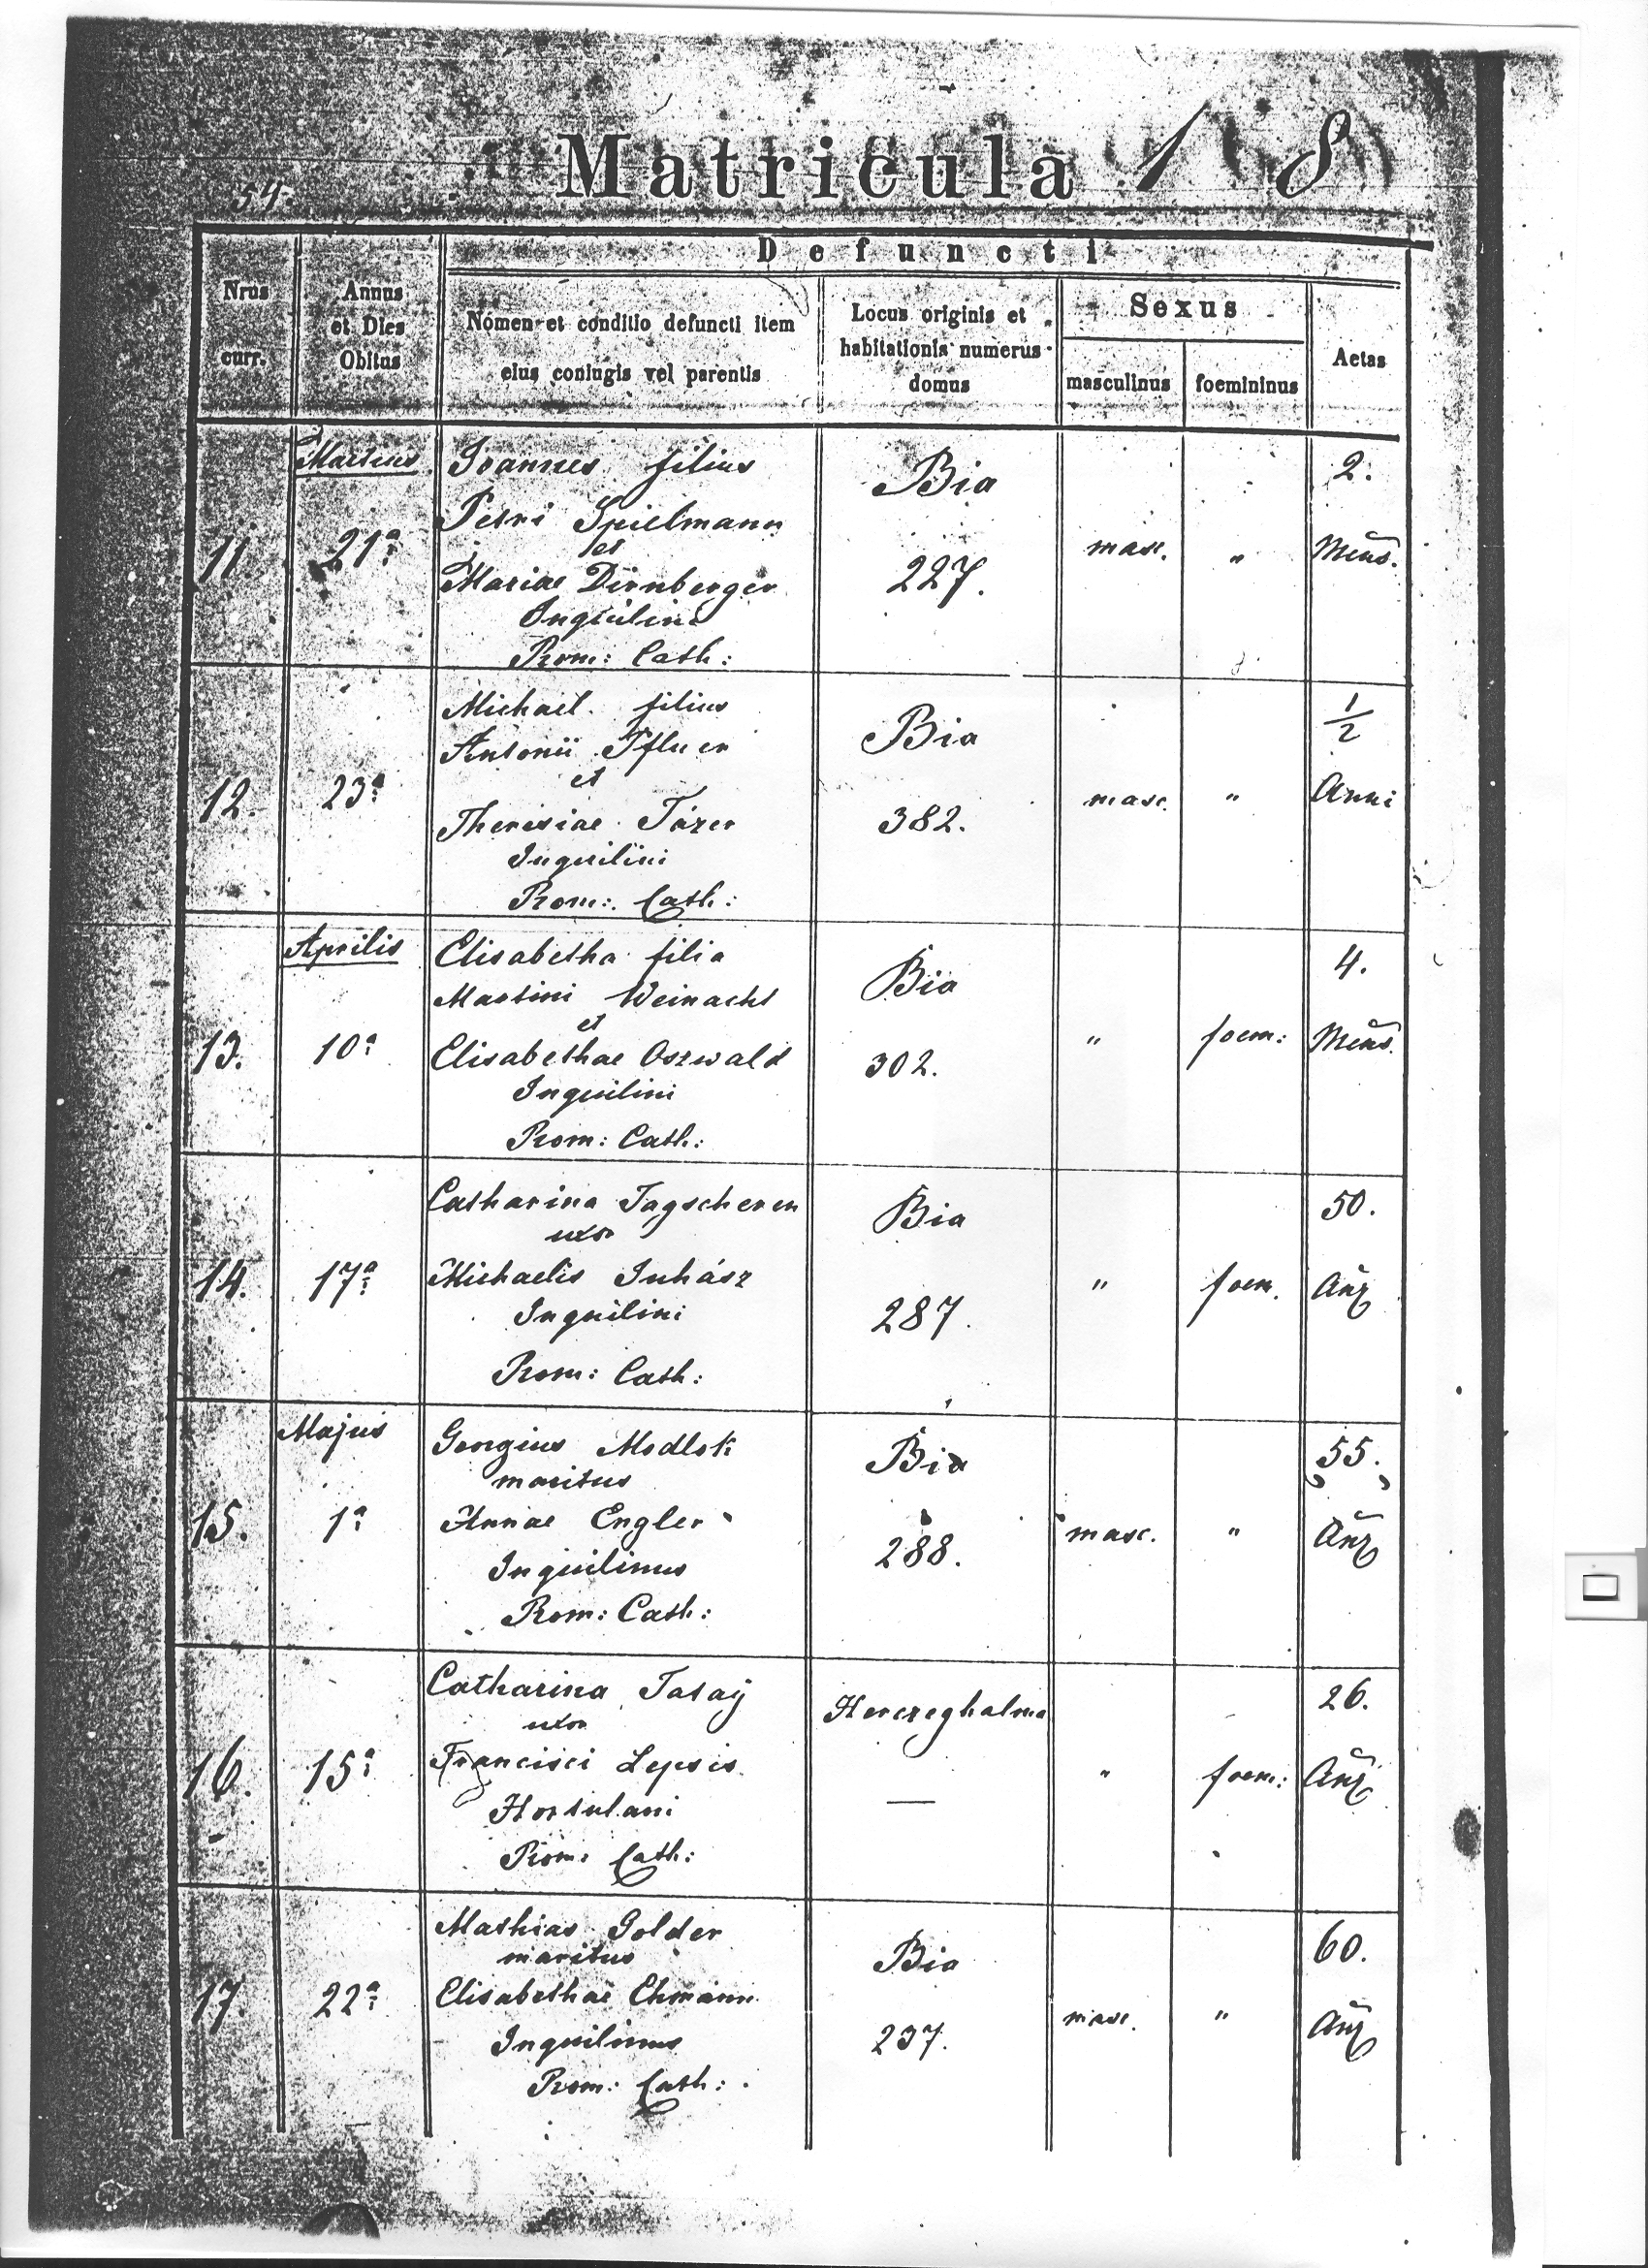 54.
Matricula 1 8
Defuncti
Nrus curr.
Annus et Dies Obitus
Nomen et conditio defuncti item
eius coniugis vel parentis
Locus originis et
habitationis numerus
domus
Sexus
masculinus
foemininus
Aetas
Martius
11
21ª
Joannes filius
Petri Spielmann
et
Mariae Dirnberger
Inquilini
Rom: Cath:
Bia
227.
masc.
"
2.
Mens.
12.
23ª
Michael filius
Antonii
et
Theresiae
Inquilini
Rom: Cath:
Bia
382.
masc.
"
1/2
Anni
Aprilis
13.
10ª
Elisabetha filia
Martini Weinacht
et
Elisabethae Oszwald
Inquilini
Rom: Cath:
Bia
302.
"
foem:
4.
Mens.
14.
17ª
Catharina Tagscherer
uxor
Michaelis Juhász
Inquilini
Rom: Cath:
Bia
287.
"
foem.
50.
Majus
15.
1ª
Georgius
maritus
Annae Engler
Inquilinus
Rom: Cath:
Bia
288.
masc.
"
55.
16.
15ª
Catharina
uxor
Francisci Lepsis
Hortulani
Rom: Cath:
Herczeghalma
—
"
foem:
26.
17.
22ª
Mathias Golder
maritus
Elisabethae Ehmann
Inquilinus
Rom: Cath:
Bia
237.
masc.
"
60.